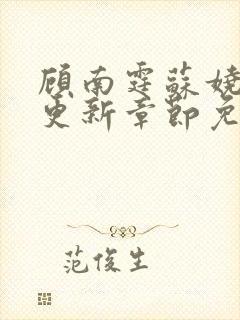 顾南霆蘇娆
更新章節免
范俊生